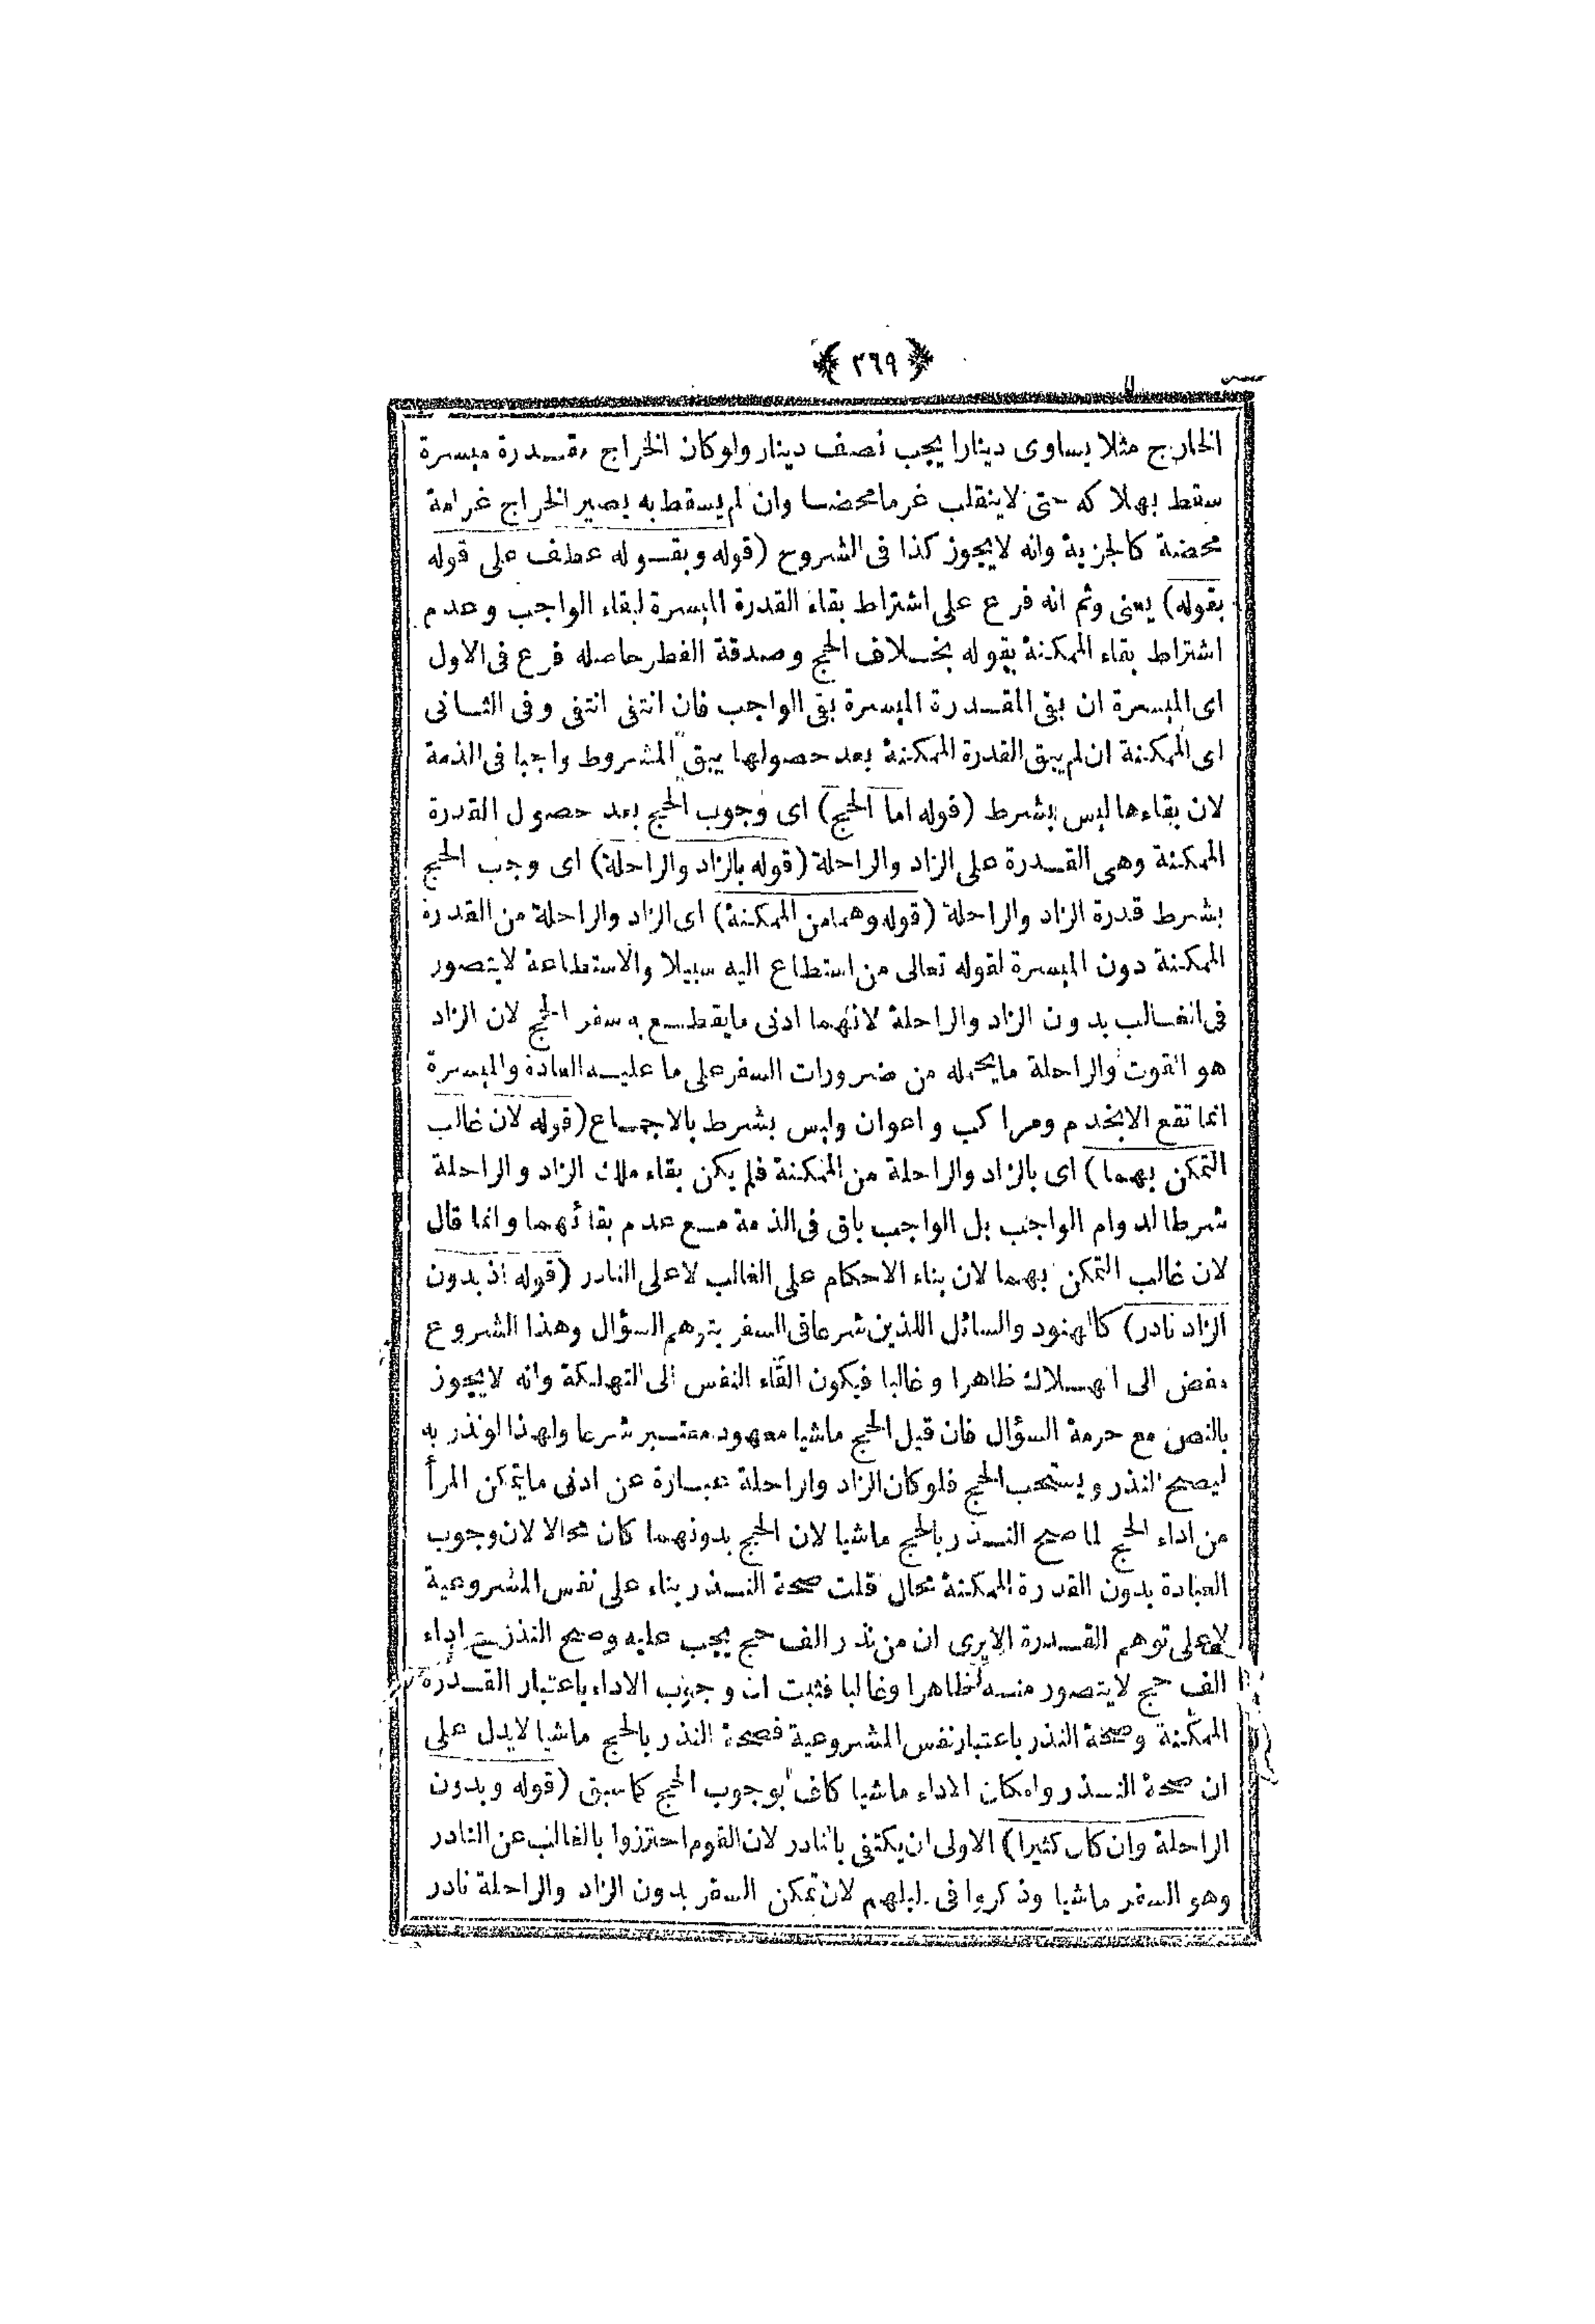 ﴿ ٣٦٩ ﴾
الخارج مثلا يساوى دينارا يجب نصف دينار ولو كان الخراج بقدرة ميسرة
سقط بهلا كه حتى لا ينقلب غرما محضا وان لم يسقط به يصير الخراج غرامة
محضة كالجزية وانه لا يجوز كذا فى الشروح (قوله وبقوله عطف على قوله
بقوله) يعنى وثم انه فرع على اشتراط بقاء القدرة الميسرة لبقاء الواجب وعدم
اشتراط بقاء الممكنة بقوله بخلاف الحج وصدقة الفطر حاصله فرع فى الاول
اى الميسرة ان بقى القدرة الميسرة بقى الواجب فان انتفى انتفى وفى الثانى
اى الممكنة ان لم يبق القدرة الممكنة بعد حصولها يبق المشروط واجبا فى الذمة
لان بقاءها ليس بشرط (قوله اما الحج) اى وجوب الحج بعد حصول القدرة
الممكنة وهى القدرة على الزاد والراحلة (قوله بالزاد والراحلة) اى وجب الحج
بشرط قدرة الزاد والراحلة (قوله وهما من الممكنة) اى الزاد والراحلة من القدرة
الممكنة دون الميسرة لقوله تعالى من استطاع اليه سبيلا والاستطاعة لا يتصور
فى الغالب بدون الزاد والراحلة لانهما ادنى ما يقطع به سفر الحج لان الزاد
هو القوت والراحلة ما يحمله من ضرورات السفر على ما عليه العادة والميسرة
انما تقع الا بخدم ومراكب واعوان وليس بشرط بالاجماع (قوله لان غالب
التمكن بهما) اى بالزاد والراحلة من الممكنة فلم يكن بقاء ملك الزاد والراحلة
شرطا لدوام الواجب بل الواجب باق فى الذمة مع عدم بقائهما وانما قال
لان غالب التمكن بهما لان بناء الاحكام على الغالب لا على النادر (قوله اذ بدون
الزاد نادر) كالهنود والسائل اللذين شرعا فى السفر بتوهم السؤال وهذا الشروع
مفض الى الهلاك ظاهرا وغالبا فيكون القاء النفس الى التهلكة وانه لا يجوز
بالنص مع حرمة السؤال فان قيل الحج ماشيا معهود معتبر شرعا ولهذا لو نذر به
ليصح النذر ويستحب الحج فلو كان الزاد والراحلة عبارة عن ادنى ما يتمكن المرأ
من اداء الحج لما صح النذر بالحج ماشيا لان الحج بدونهما كان محالا لان وجوب
العبادة بدون القدرة الممكنة محال قلت صحة النذر بناء على نفس المشروعية
لا على توهم القدرة الا يرى ان من نذر الف حج يجب عليه وصح النذر مع اداء
الف حج لا يتصور منه ظاهرا وغالبا فثبت ان وجوب الاداء باعتبار القدرة
الممكنة وصحة النذر باعتبار نفس المشروعية فصحة النذر بالحج ماشيا لا يدل على
ان صحة النذر وامكان الاداء ماشيا كاف بوجوب الحج كما سبق (قوله وبدون
الراحلة وان كان كثيرا) الاولى ان يكتفى بالنادر لان القوم احترزوا بالغالب عن النادر
وهو السفر ماشيا وذكروا فى دليلهم لان تمكن السفر بدون الزاد والراحلة نادر